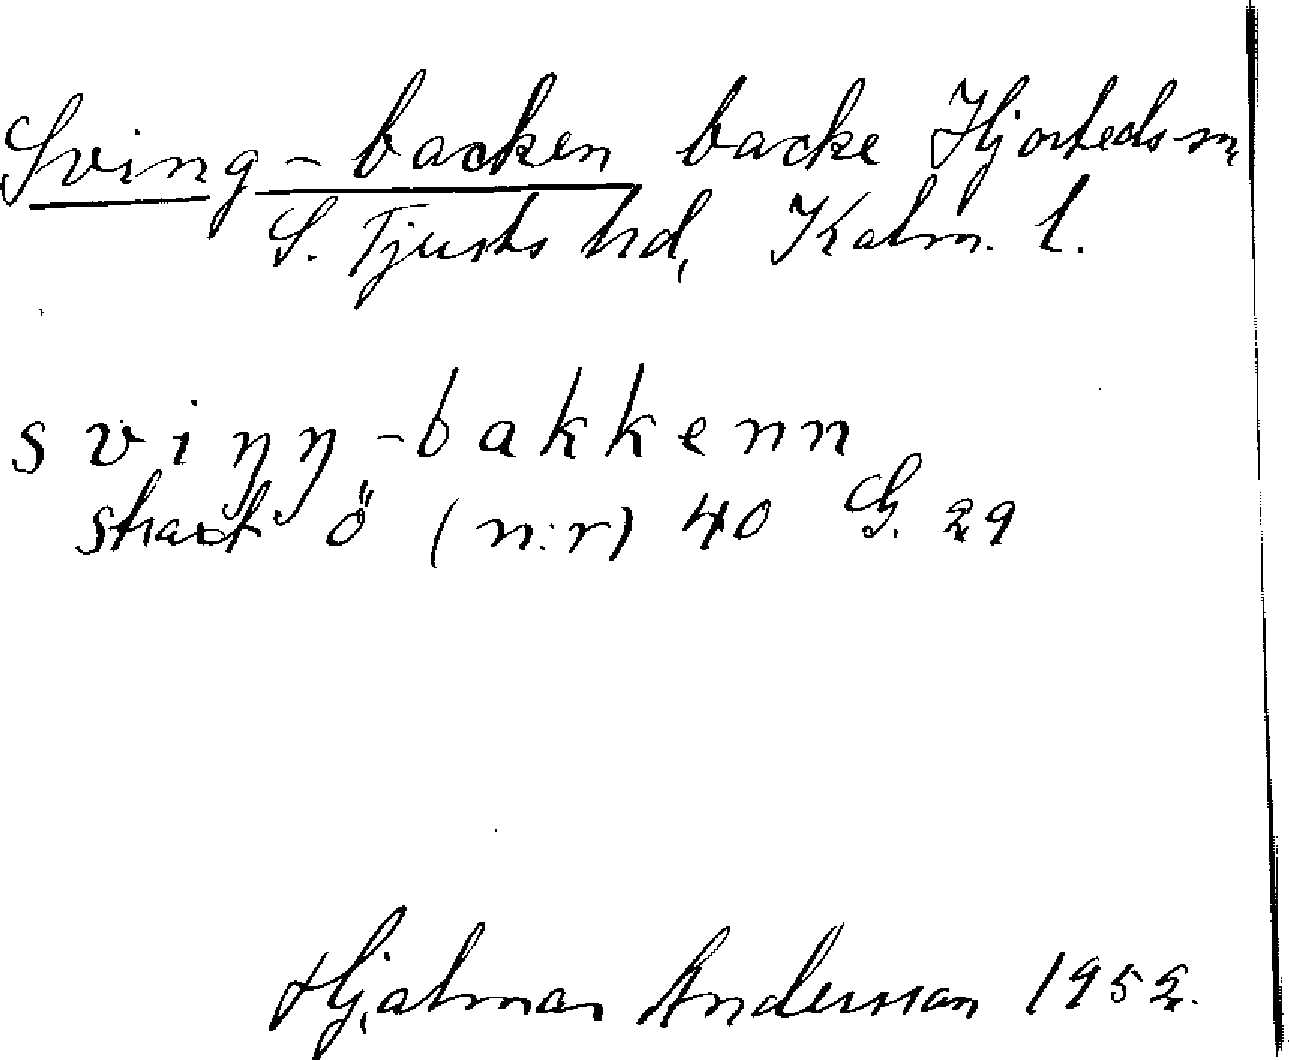 Sving-backen backe Hjorteds sn,
S. Tjusts hd, Kalm. l.
sviŋŋ-bakkenn
straxt ö (n:r) 40 G. 29
Hjalmar Andersson 1952.